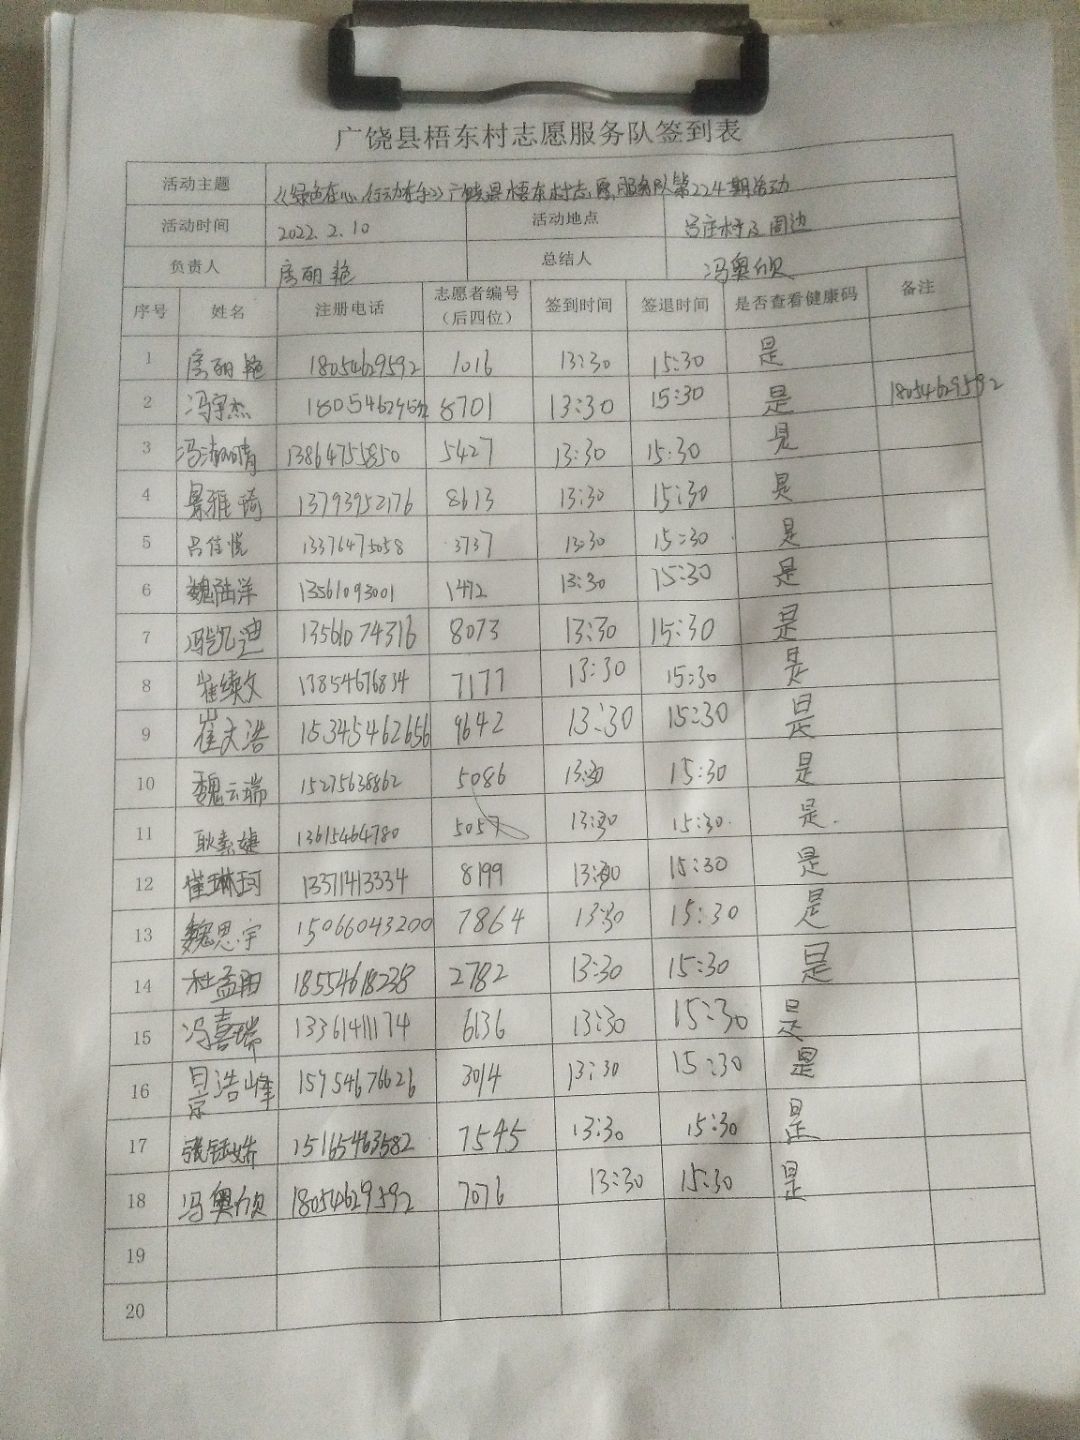 广饶县梧东村志愿服务队签到表
活动主题 《绿色在心,行动在手》广饶县梧东村志愿服务队第224期活动
活动时间 2022.2.10 活动地点 吕庄村及周边
负责人 房丽艳 总结人 冯奥欣
序号 姓名 注册电话 志愿者编号（后四位） 签到时间 签退时间 是否查看健康码 备注
1 房丽艳 18054629592 1016 13:30 15:30 是
2 冯宇杰 8701 13:30 15:30 是 18054629592
3 冯淑晴 13864755850 5427 13:30 15:30 是
4 景雅琦 13793952176 8613 13:30 15:30 是
5 吕佳悦 13376475058 3737 13:30 15:30 是
6 魏陆洋 13561093001 1472 13:30 15:30 是
7 冯凯迪 13561074316 8073 13:30 15:30 是
8 崔续文 13854676834 7177 13:30 15:30 是
9 崔文浩 15345462656 9642 13:30 15:30 是
10 魏云瑞 15275638862 5086 13:30 15:30 是
11 耿素婕 13615464780 5057 13:30 15:30. 是.
12 崔琳珂 13371413334 8199 13:30 15:30 是
13 魏思宇 15066043200 7864 13:30 15:30 是
14 杜孟阳 18554618238 2782 13:30 15:30 是
15 冯喜瑞 13361411174 6136 13:30 15:30 是
16 景浩峰 15954676626 3014 13:30 15:30 是
17 张钰娇 15165463582 7545 13:30 15:30 是
18 冯奥欣 18054629592 7076 13:30 15:30 是
19
20